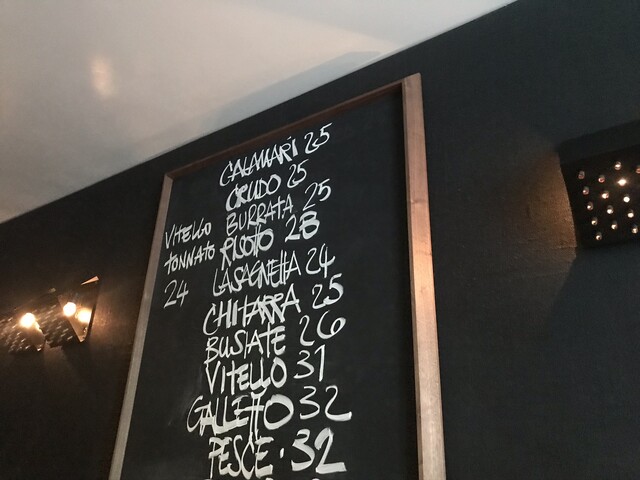 CALAMARI 25
CRUDO 25
BURRATA 25
VITELLO
TONNATO
24
RISOTTO 28
LASAGNETTA 24
CHITARRA 25
BUSIATE 26
VITELLO 31
GALLETTO 32
PESCE · 32